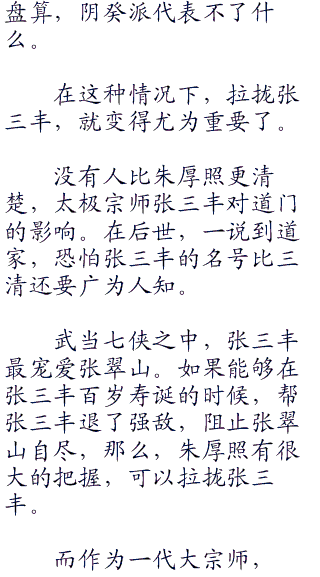 盘算，阴癸派代表不了什
么。
在这种情况下，拉拢张
三丰，就变得尤为重要了。
没有人比朱厚照更清
楚，太极宗师张三丰对道门
的影响。在后世，一说到道
家，恐怕张三丰的名号比三
清还要广为人知。
武当七侠之中，张三丰
最宠爱张翠山。如果能够在
张三丰百岁寿诞的时候，帮
张三丰退了强敌，阻止张翠
山自尽，那么，朱厚照有很
大的把握，可以拉拢张三
丰。
而作为一代大宗师，